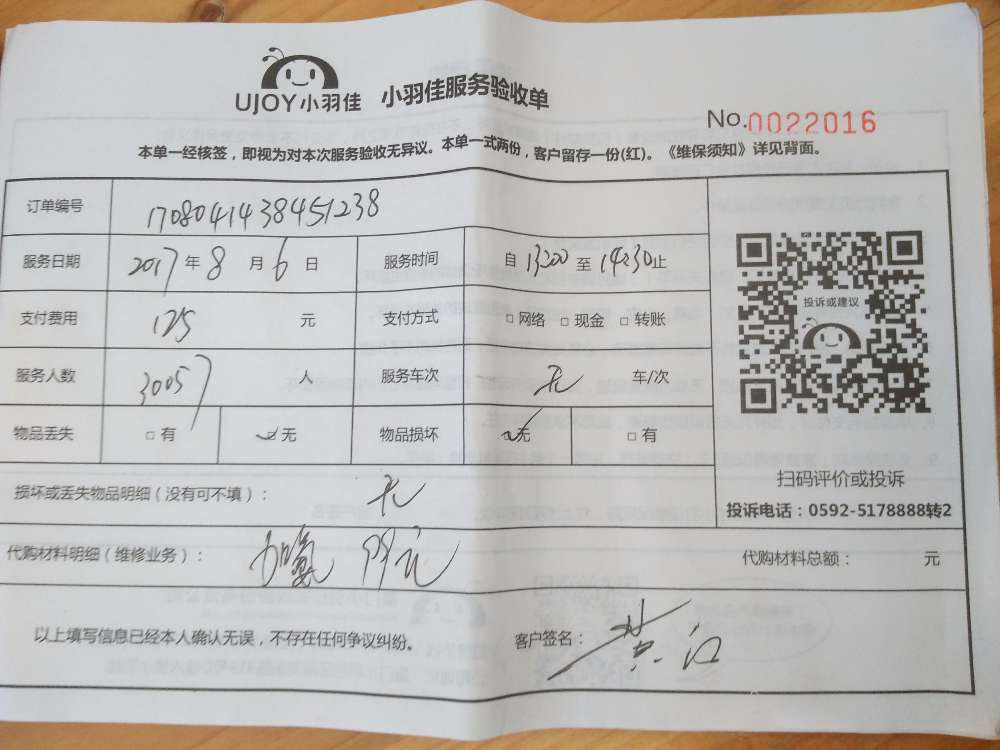 UJOY小羽佳 小羽佳服务验收单
No.0022016
本单一经核签，即视为对本次服务验收无异议。本单一式两份，客户留存一份(红)。《维保须知》详见背面。
订单编号 170804143845​1238
服务日期 2017 年 8 月 6 日 服务时间 自 13:00 至 14:30 止
支付费用 125 元 支付方式 □ 网络 □ 现金 □ 转账
服务人数 人 服务车次 无 车/次
物品丢失 □ 有 ☑ 无 物品损坏 ☑ 无 □ 有
投诉或建议
扫码评价或投诉
投诉电话：0592-5178888转2
损坏或丢失物品明细（没有可不填）： 无
代购材料明细（维修业务）： 加氟 代购材料总额： 元
以上填写信息已经本人确认无误，不存在任何争议纠纷。 客户签名：